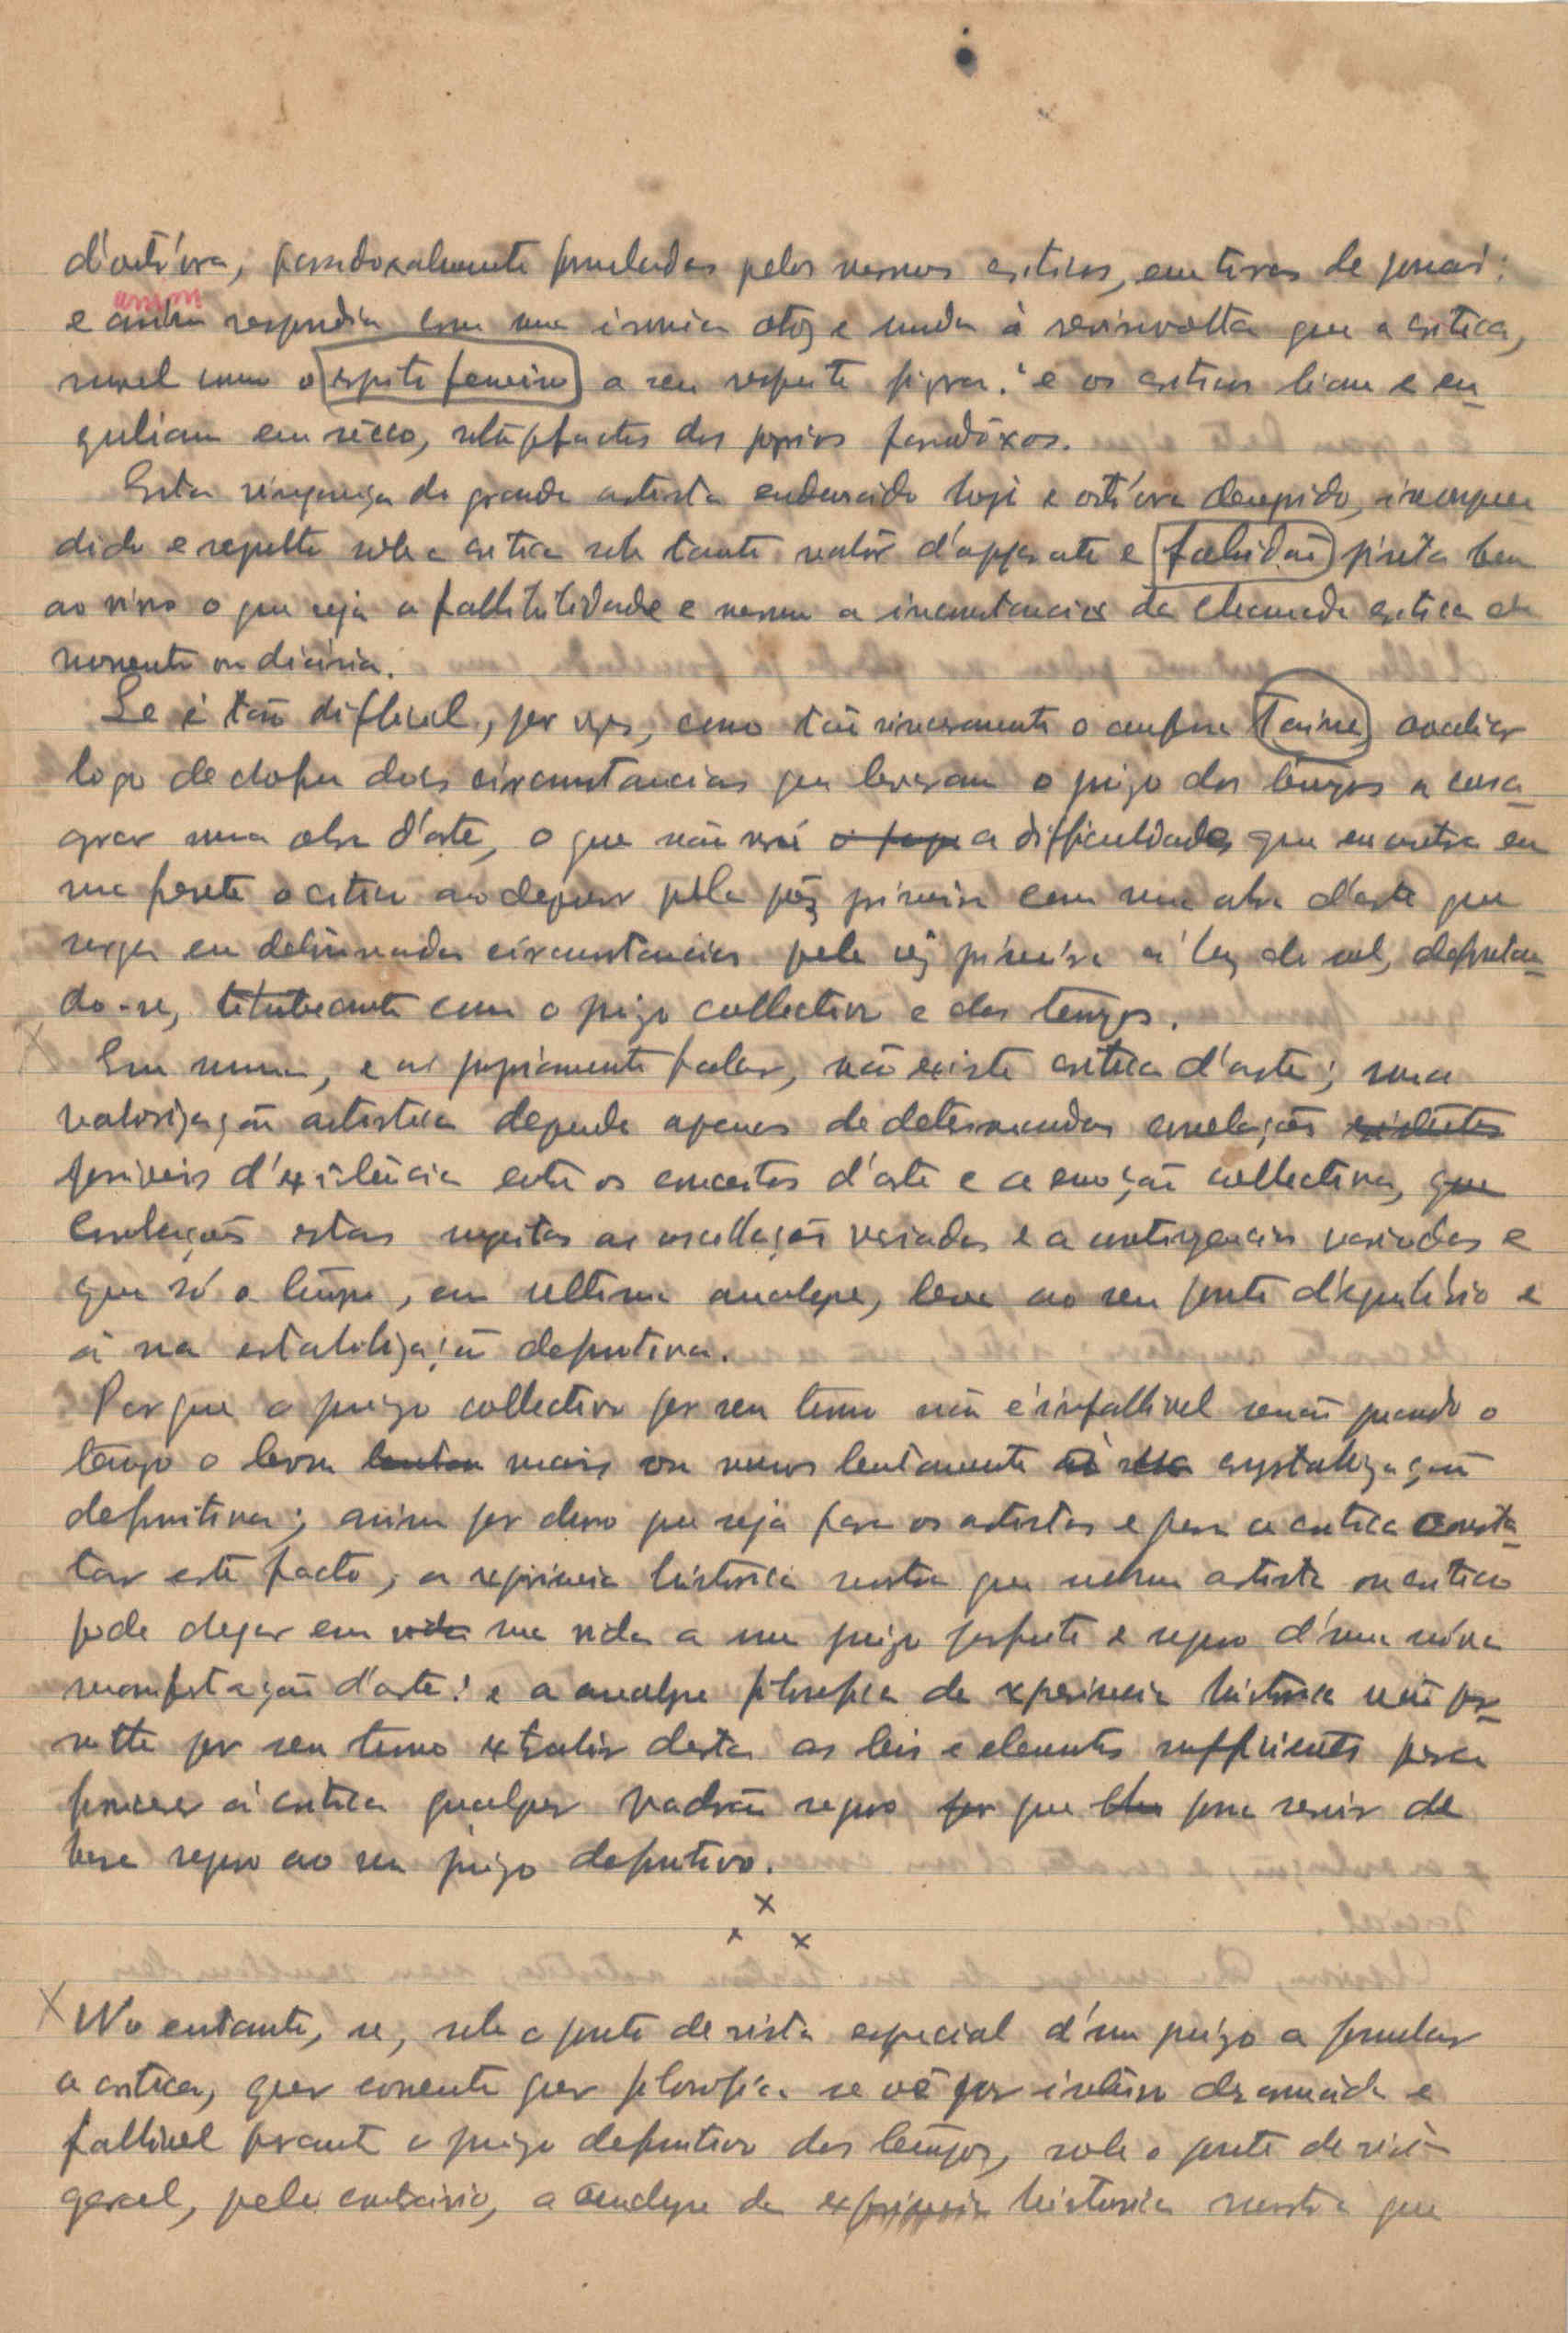 d'outr'ora, paradoxalmente formuladas pelos mesmos criticos, em tiras de jornais:
e assim assim respondia com uma ironia atroz e muda á reviravolta que a critica,
a seu respeito e os criticos liam e en-
guliam em sêcco, estupefactos dos proprios paradóxos.
Esta vingança do grande artista endeusado hoje e outr'ora incompreen
dido e sobre a critica sob tanto d'apparente e pinta bem
ao vivo o que seja a fallibilidade e mesmo a inconstancia da chamada critica do
momento ou diaria.
Se é tão difficil, por vezes, como tão sinceramente o confessa Taine avaliar
logo das circumstancias que levaram o juizo dos tempos a consa-
grar uma obra d'arte, o que não será a difficuldade que encontra em
sua frente o critico ao pela vez primeira com uma obra d'arte que
surja em determinadas circumstancias pela vez primeira á luz do sol, defrontan-
do-se, titubeante com o juizo collectivo e dos tempos.
Em summa, e propriamente fallar, não existe critica d'arte; uma
valorização artistica depende apenas de determinadas correlações existentes
possiveis d'existencia entre os conceitos d'arte e a emoção collectiva, que
correlações estas sujeitas ás oscillações variadas e a contingencias variadas e
que só o tempo, em ultima analyse, leva ao seu ponto d'equilibrio e
á sua estabilização definitiva.
Porque o juizo collectivo por seu turno não é infallivel senão quando o
tempo o levou mais ou menos lentamente á sua crystalização
definitiva; assim por duro que seja para os artistas e para a critica consta-
tar este facto, a experiencia historica mostra que nenhum artista ou critico
pode chegar em vida sua vida a um juizo perfeito e seguro d'uma nóva
manifestação d'arte: e a analyse filosofica da experiencia historica não per-
mitte por seu turno extrahir desta as leis e elementos sufficientes para
fornecer á critica qualquer padrão seguro por que possa servir de
base segura ao seu juizo definitivo.
x
x x
x No entanto, se, sob o ponto de vista especial d'um juizo a formular
a critica, quer corrente quer filosofica se vê por inteiro desarmada e
fallivel perante o juizo definitivo dos tempos, sob o ponto de vista
geral, pelo contrario, a analyse da experiencia historica mostra que